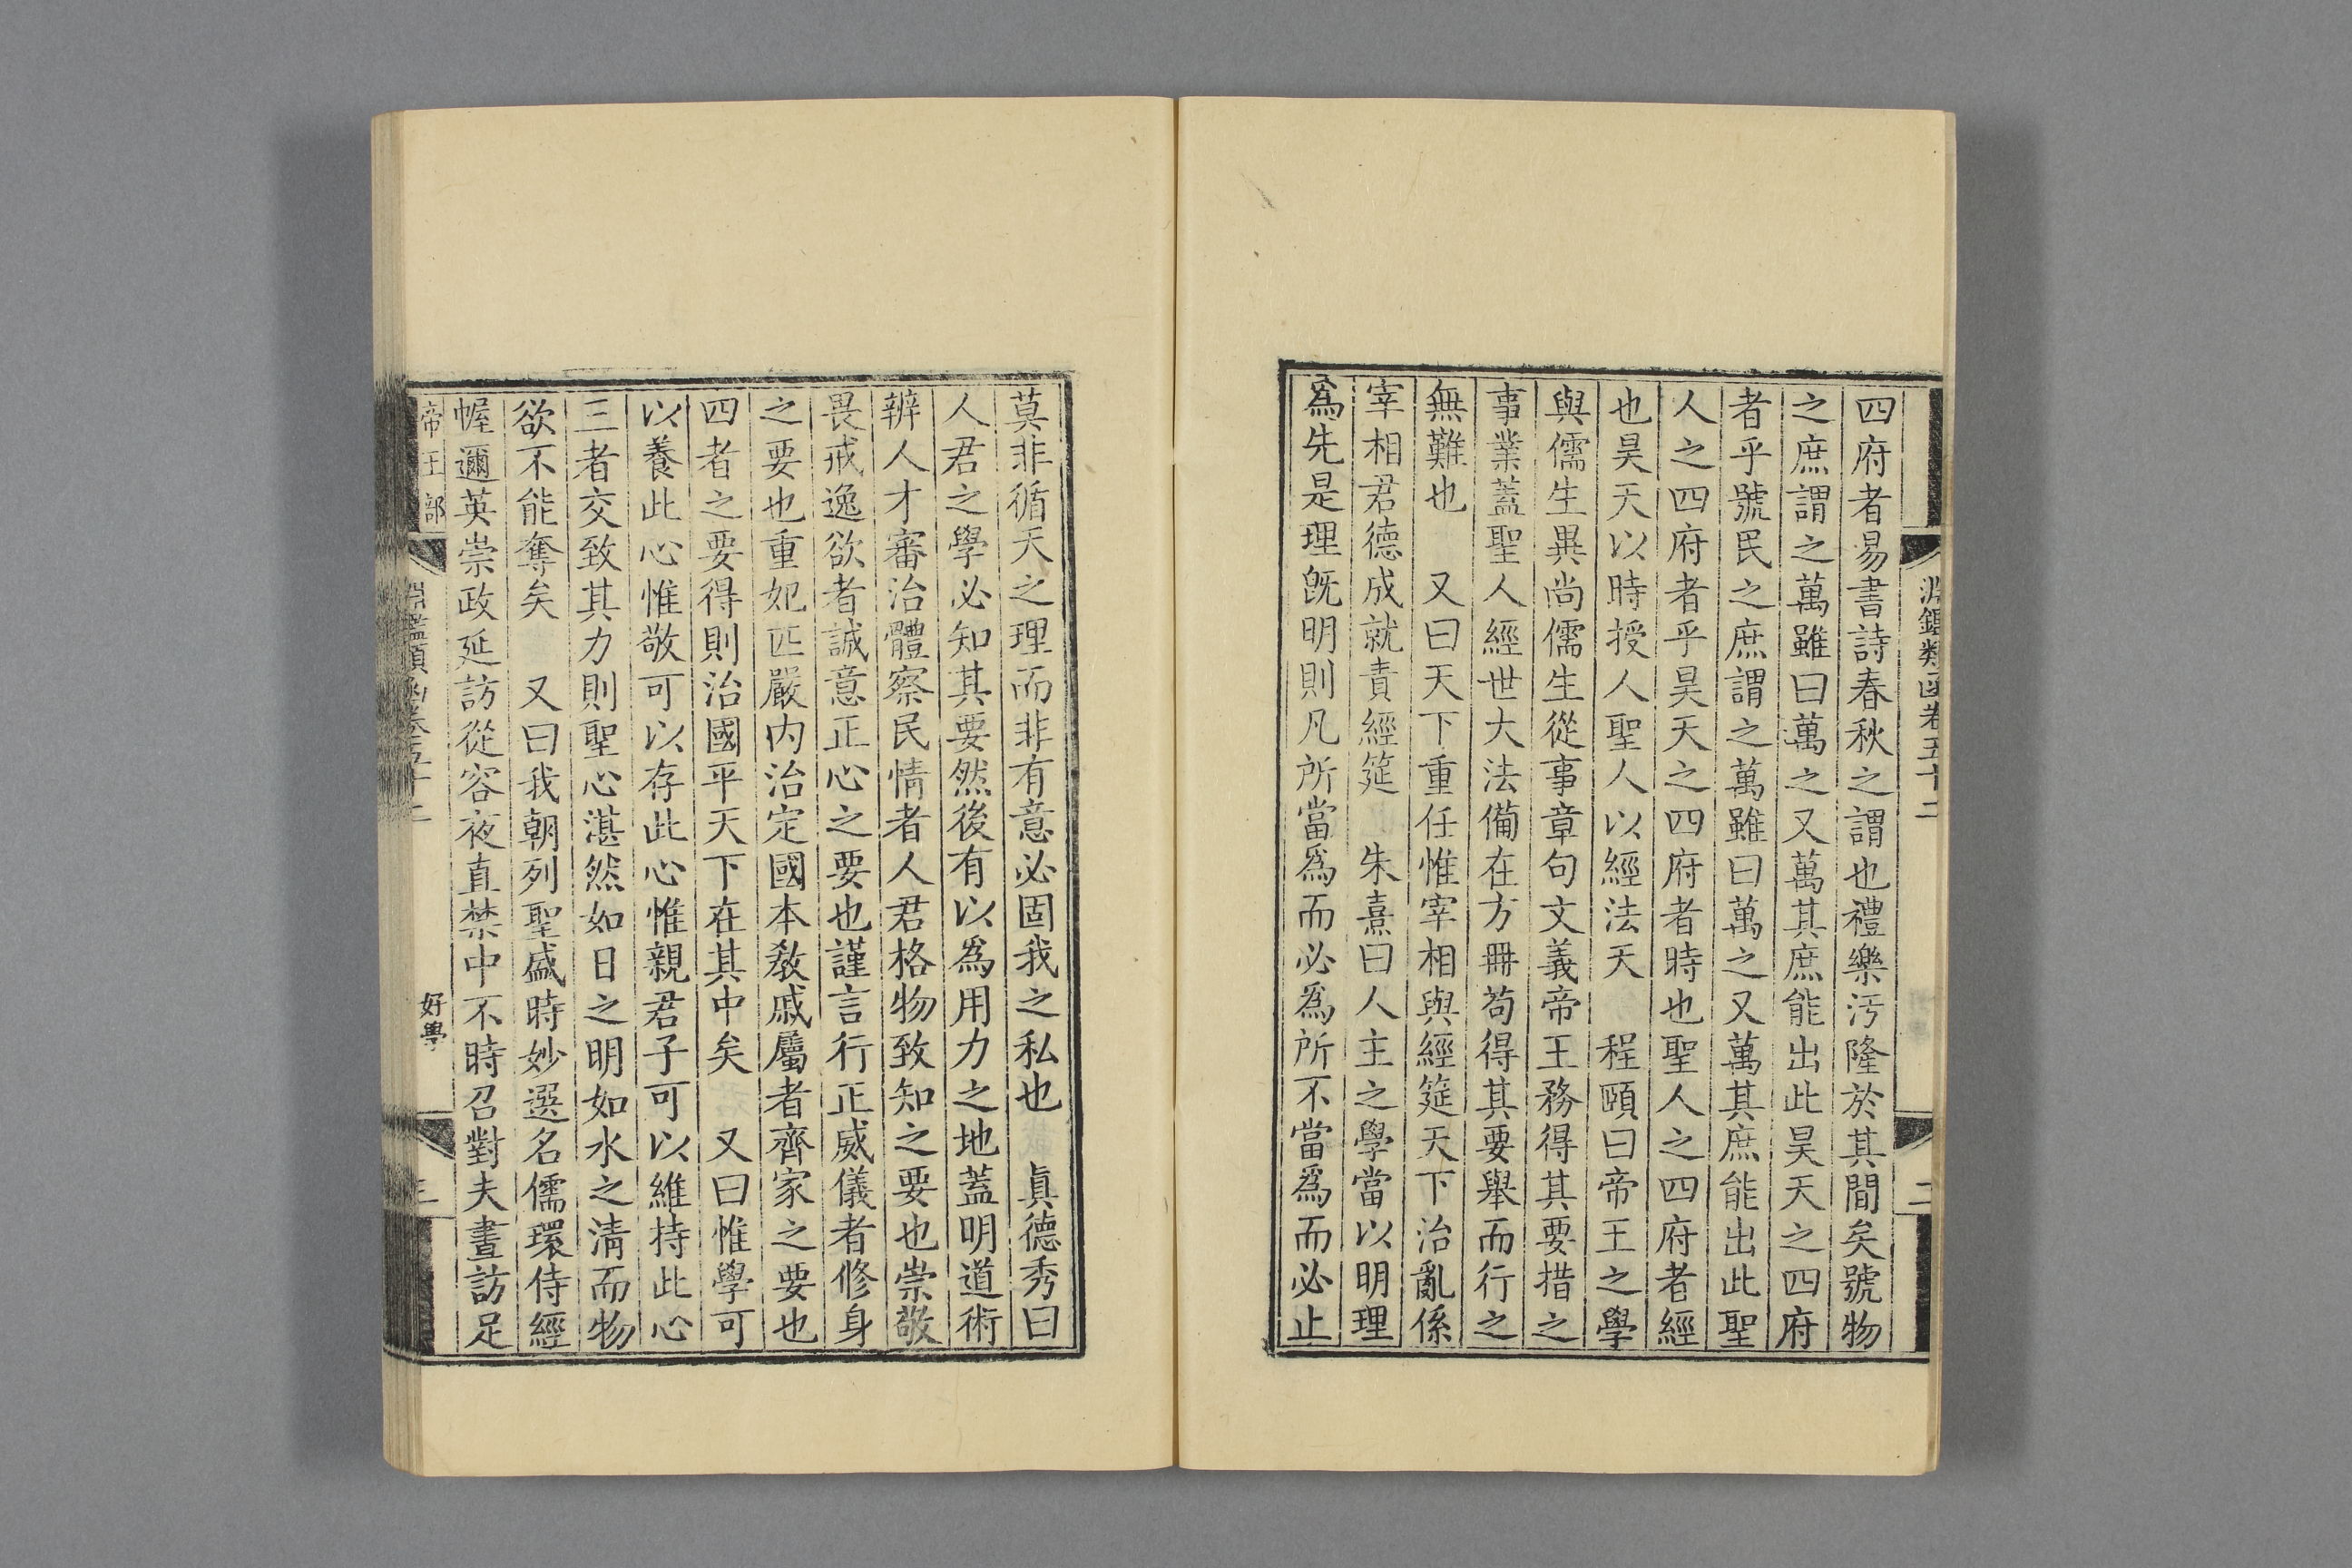 淵鑑類函卷五十二
二
四府者易書詩春秋之謂也禮樂汚隆於其間矣號物
之庶謂之萬雖曰萬之又萬其庶能出此昊天之四府
者乎號民之庶謂之萬雖曰萬之又萬其庶能出此聖
人之四府者乎昊天之四府者時也聖人之四府者經
也昊天以時授人聖人以經法天　程頤曰帝王之學
與儒生異尚儒生從事章句文義帝王務得其要措之
事業蓋聖人經世大法備在方冊苟得其要舉而行之
無難也　又曰天下重任惟宰相與經筵天下治亂係
宰相君德成就責經筵　朱熹曰人主之學當以明理
爲先是理旣明則凡所當爲而必爲所不當爲而必止
莫非循天之理而非有意必固我之私也　眞德秀曰
人君之學必知其要然後有以爲用力之地蓋明道術
辨人才審治體察民情者人君格物致知之要也崇敬
畏戒逸欲者誠意正心之要也謹言行正威儀者修身
之要也重妃匹嚴内治定國本敎戚屬者齊家之要也
四者之要得則治國平天下在其中矣　又曰惟學可
以養此心惟敬可以存此心惟親君子可以維持此心
三者交致其力則聖心湛然如日之明如水之淸而物
欲不能奪矣　又曰我朝列聖盛時妙選名儒環侍經
幄邇英崇政延訪從容夜直禁中不時召對夫晝訪足
帝王部
淵鑑類函卷五十二
好學
三